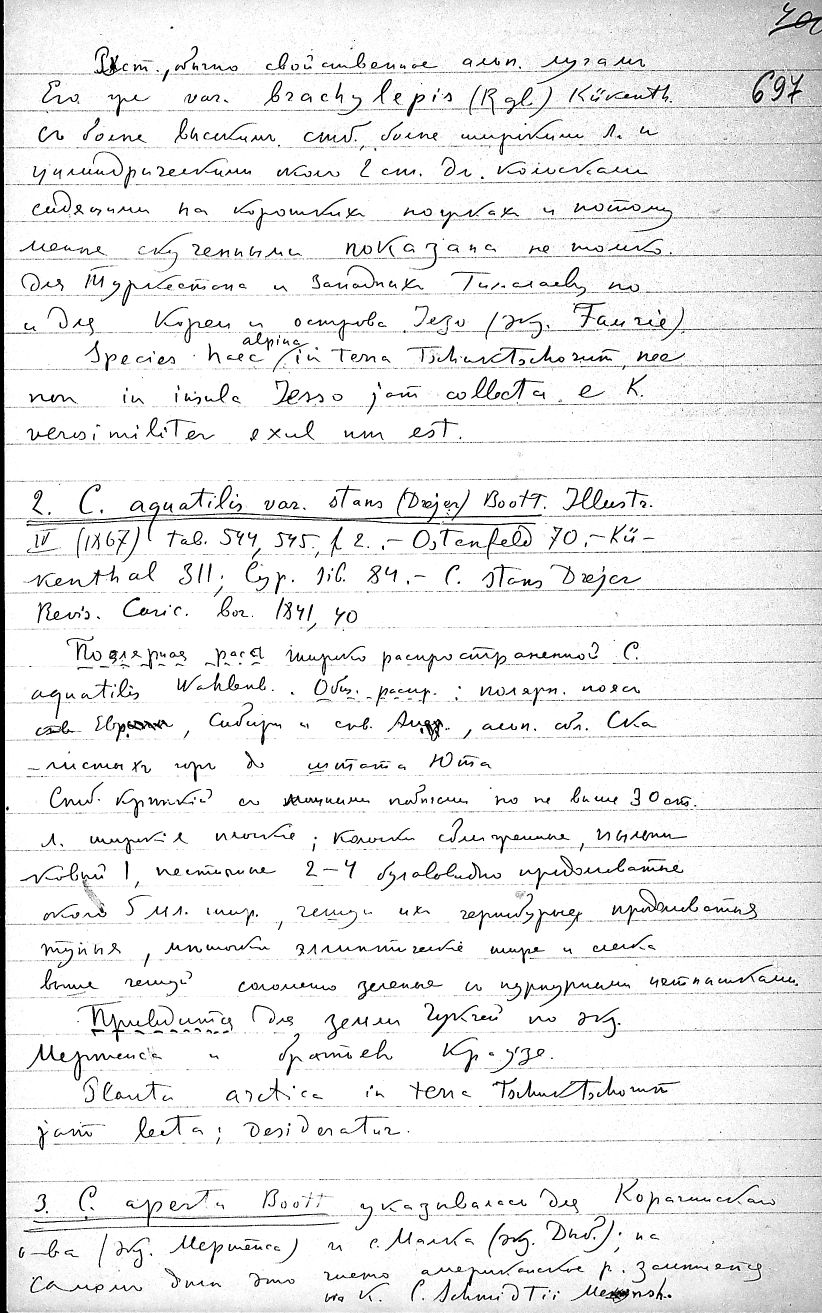 697
Раст., обычно свойственное альп. лугам
Его же var. brachylepis (Rgl.) Kükenth.
съ более высоким. стеб., более широкими л. и
цилиндрическими около 2 cm. дл. колосками
сидящими на коротких ножках и потому
менее скученными показана не только
для Туркестана и Западных Гималаев, но
и для Кореи и острова Iезо (экз. Faurie).
Species haec alpina in terra Tschuktschorum, nec
non in insula Jesso jam collecta, e K.
verosimiliter exul um est.
2. C. aquatilis var. stans (Drejer) Boott. Illustr.
IV (1867) tab. 544, 545, f. 2. - Ostenfeld 70. - Kü-
kenthal 311; Cyp. Sib. 84. - C. stans Drejer
Revis. Caric. bor. 1841, 40
Полярная раса широко распространенной C.
aquatilis Wahlenb. Общ. распр.: полярн. пояс
Евр., Сибири и сев. Амер., альп. обл. Ска
-листыхъ горъ до штата Юта
Стеб. крепкий со мощными побегами но не выше 30 cm.
л. широкие плоские; колоски сближенные, пыльни
ковый 1, пестичные 2-4 булавовидно продолговатые
около 5 мл. шир., чешуи их чернобурые продолговатыя
тупыя, мешочки эллиптические шире и слегка
выше чешуй соломенно зеленые с пурпурными пятнышками.
Приводится для земли Чукчей по экз.
Мертенса и братьев Краузе.
Planta arctica in terra Tschuktschorum
jam lecta; desideratur.
3. C. aperta Boott указывалась для Корагинскаго
о-ва (экз. Мертенса) и с. Малка (экз. Дыб.); на
самом деле это чисто американское р. заменяется
на К. C. Schmidtii Meinsh.